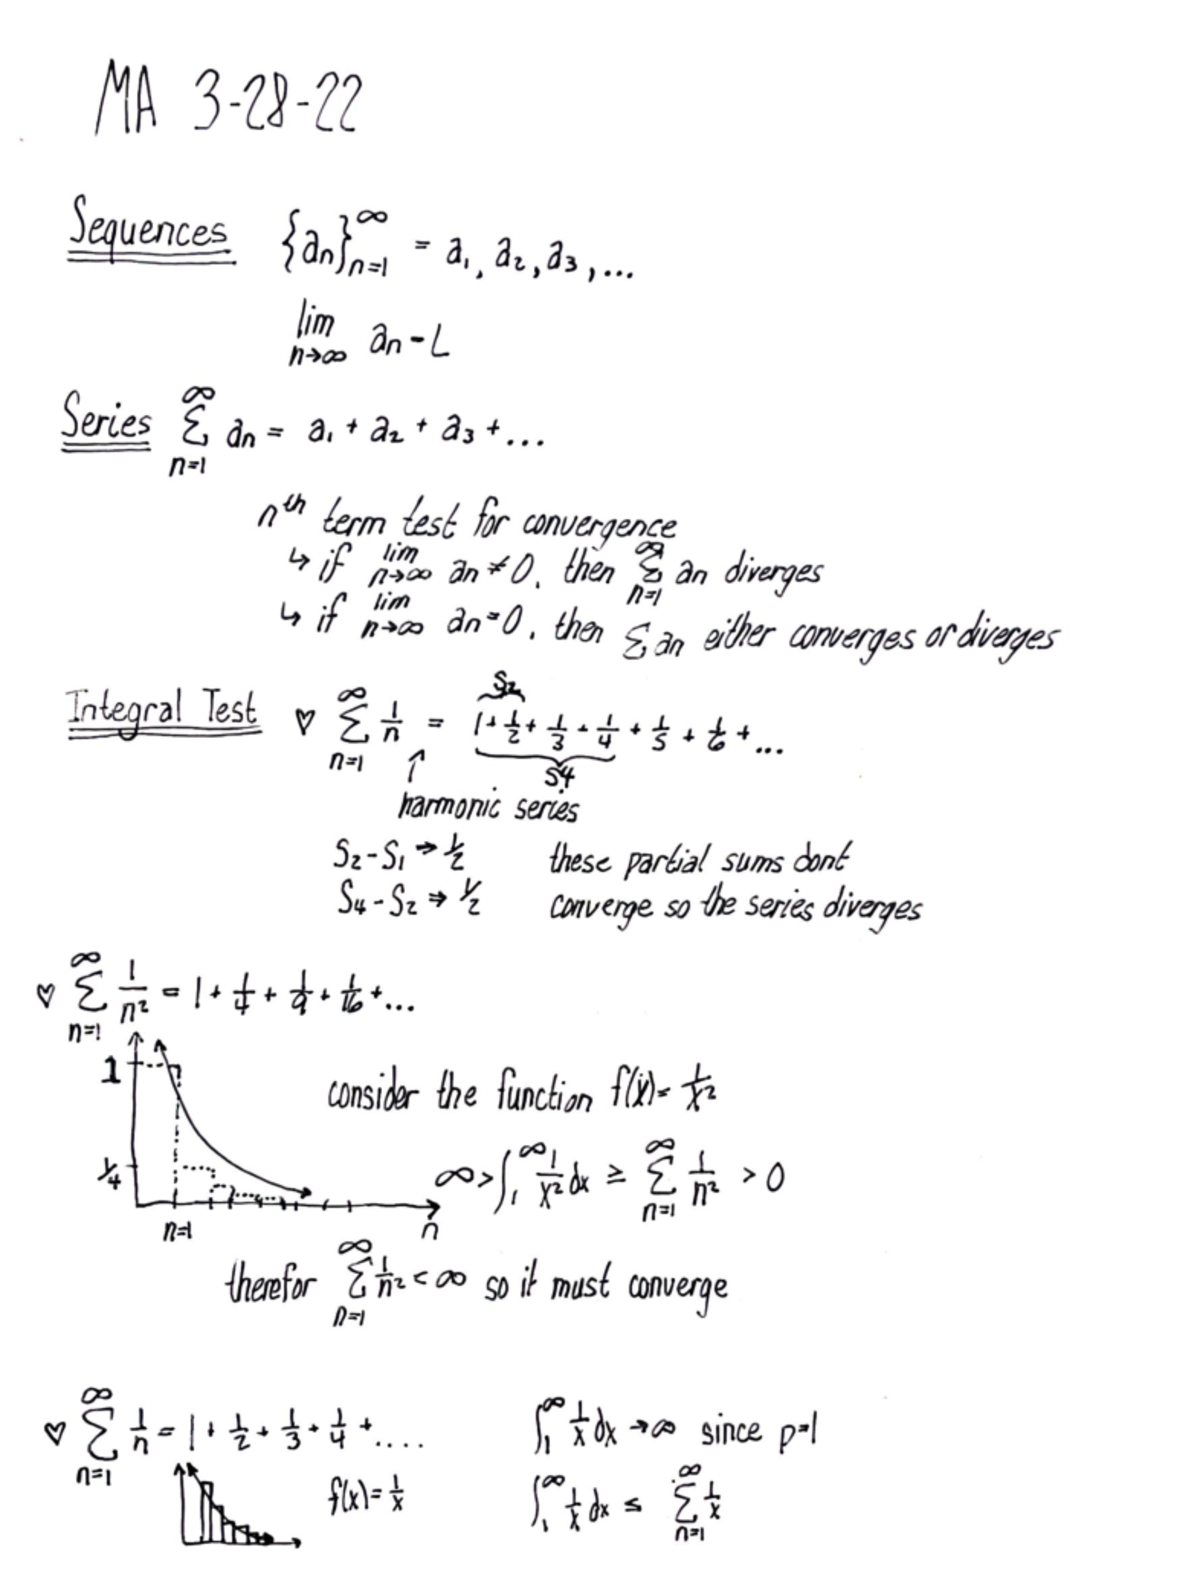 MA 3-28-22
Sequences {an}∞n=1 = a1, a2, a3, ...
lim n→∞ an - L
Series ∞Σn=1 an = a1 + a2 + a3 + ...
nth term test for convergence
↳ if lim n→∞ an ≠ 0, then ∞Σn=1 an diverges
↳ if lim n→∞ an = 0, then Σ an either converges or diverges
Integral Test ♡ ∞Σn=1 1/n = 1 + 1/2 + 1/3 + 1/4 + 1/5 + 1/6 + ...
S2
S4
↑
harmonic series
S2 - S1 → 1/2 these partial sums dont
S4 - S2 ⇒ 1/2 converge so the series diverges
♡ ∞Σn=1 1/n² = 1 + 1/4 + 1/9 + 1/16 + ...
1
1/4
n=1
n
consider the function f(x) = 1/x²
∞ > ∫1∞ 1/x² dx ≥ ∞Σn=1 1/n² > 0
therefor ∞Σn=1 1/n² < ∞ so it must converge
♡ ∞Σn=1 1/n = 1 + 1/2 + 1/3 + 1/4 + .... ∫1∞ 1/x dx → ∞ since p=1
f(x) = 1/x ∫1∞ 1/x dx ≤ ∞Σn=1 1/x